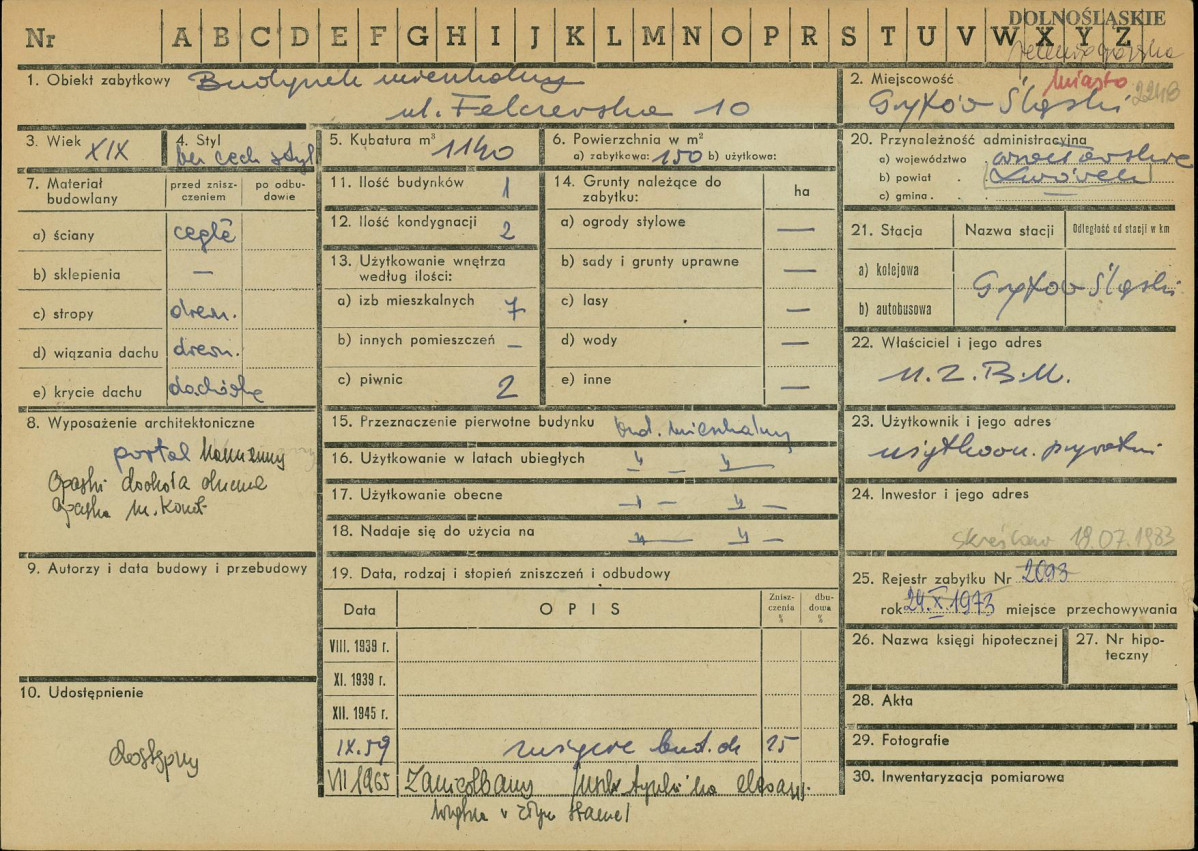 DOLNOŚLĄSKIE
Nr A B C D E F G H I J K L M N O P R S T U V W X Y Z
Jeleniogórska
1. Obiekt zabytkowy Budynek mieszkalny
ul. Felczerska 10
2. Miejscowość miasto 2248
Gryfów Śląski
3. Wiek XIX
4. Styl bez cech styl
5. Kubatura m³ 1140
6. Powierzchnia w m²
a) zabytkowa: 150 b) użytkowa:
20. Przynależność administracyjna
a) województwo wrocławskie
b) powiat Lwówek
c) gmina
7. Materiał budowlany
przed zniszczeniem
po odbudowie
a) ściany cegła
b) sklepienia —
c) stropy drewn.
d) wiązania dachu drewn.
e) krycie dachu dachówka
11. Ilość budynków 1
12. Ilość kondygnacji 2
13. Użytkowanie wnętrza według ilości:
a) izb mieszkalnych 7
b) innych pomieszczeń —
c) piwnic 2
14. Grunty należące do zabytku: ha
a) ogrody stylowe —
b) sady i grunty uprawne —
c) lasy —
d) wody —
e) inne —
21. Stacja Nazwa stacji Odległość od stacji w km
a) kolejowa
Gryfów Śląski
b) autobusowa
22. Właściciel i jego adres
M.Z.B.M.
8. Wyposażenie architektoniczne
portal kamienny
Opaski dookoła okienne
Opaska
15. Przeznaczenie pierwotne budynku bud. mieszkalny
16. Użytkowanie w latach ubiegłych " — " —
17. Użytkowanie obecne " — " —
18. Nadaje się do użycia na " — " —
23. Użytkownik i jego adres
użytkown. prywatni
24. Inwestor i jego adres
skreślono 18.07.1983
9. Autorzy i data budowy i przebudowy
19. Data, rodzaj i stopień zniszczeń i odbudowy
Data OPIS Zniszczenia % dbudowa %
VIII. 1939 r.
XI. 1939 r.
XII. 1945 r.
IX.59 zużycie bud. ok 25
VII 1965 Zaniedbany
w złym stanie
25. Rejestr zabytku Nr 2093
rok 24.X.1973 miejsce przechowywania
26. Nazwa księgi hipotecznej
27. Nr hipoteczny
10. Udostępnienie
dostępny
28. Akta
29. Fotografie
30. Inwentaryzacja pomiarowa